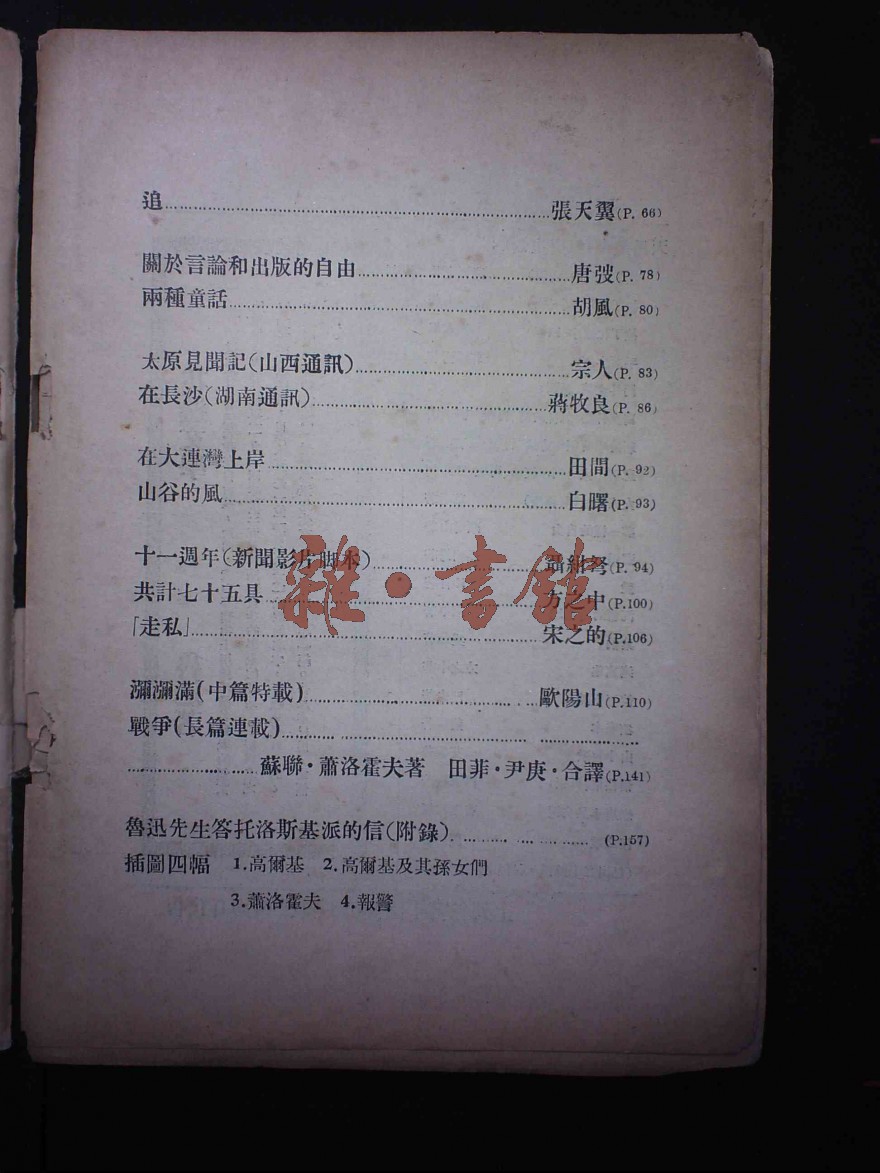 追……………………………………………………張天翼(P. 66)
關於言論和出版的自由……………………………唐弢(P. 78)
兩種童話……………………………………………胡風(P. 80)
太原見聞記(山西通訊)……………………………宗人(P. 83)
在長沙(湖南通訊)…………………………………蔣牧良(P. 86)
在大連灣上岸………………………………………田間(P. 92)
山谷的風……………………………………………白曙(P. 93)
十一週年(新聞影片脚本)…………………………聶紺弩(P. 94)
共計七十五具………………………………………方之中(P.100)
「走私」………………………………………………宋之的(P.106)
瀰瀰滿(中篇特載)…………………………………歐陽山(P.110)
戰爭(長篇連載)……………………………………
………………蘇聯·蕭洛霍夫著 田菲·尹庚·合譯(P.141)
魯迅先生答托洛斯基派的信(附錄)……………(P.157)
插圖四幅 1.高爾基 2.高爾基及其孫女們
3.蕭洛霍夫 4.報警
雜·書館